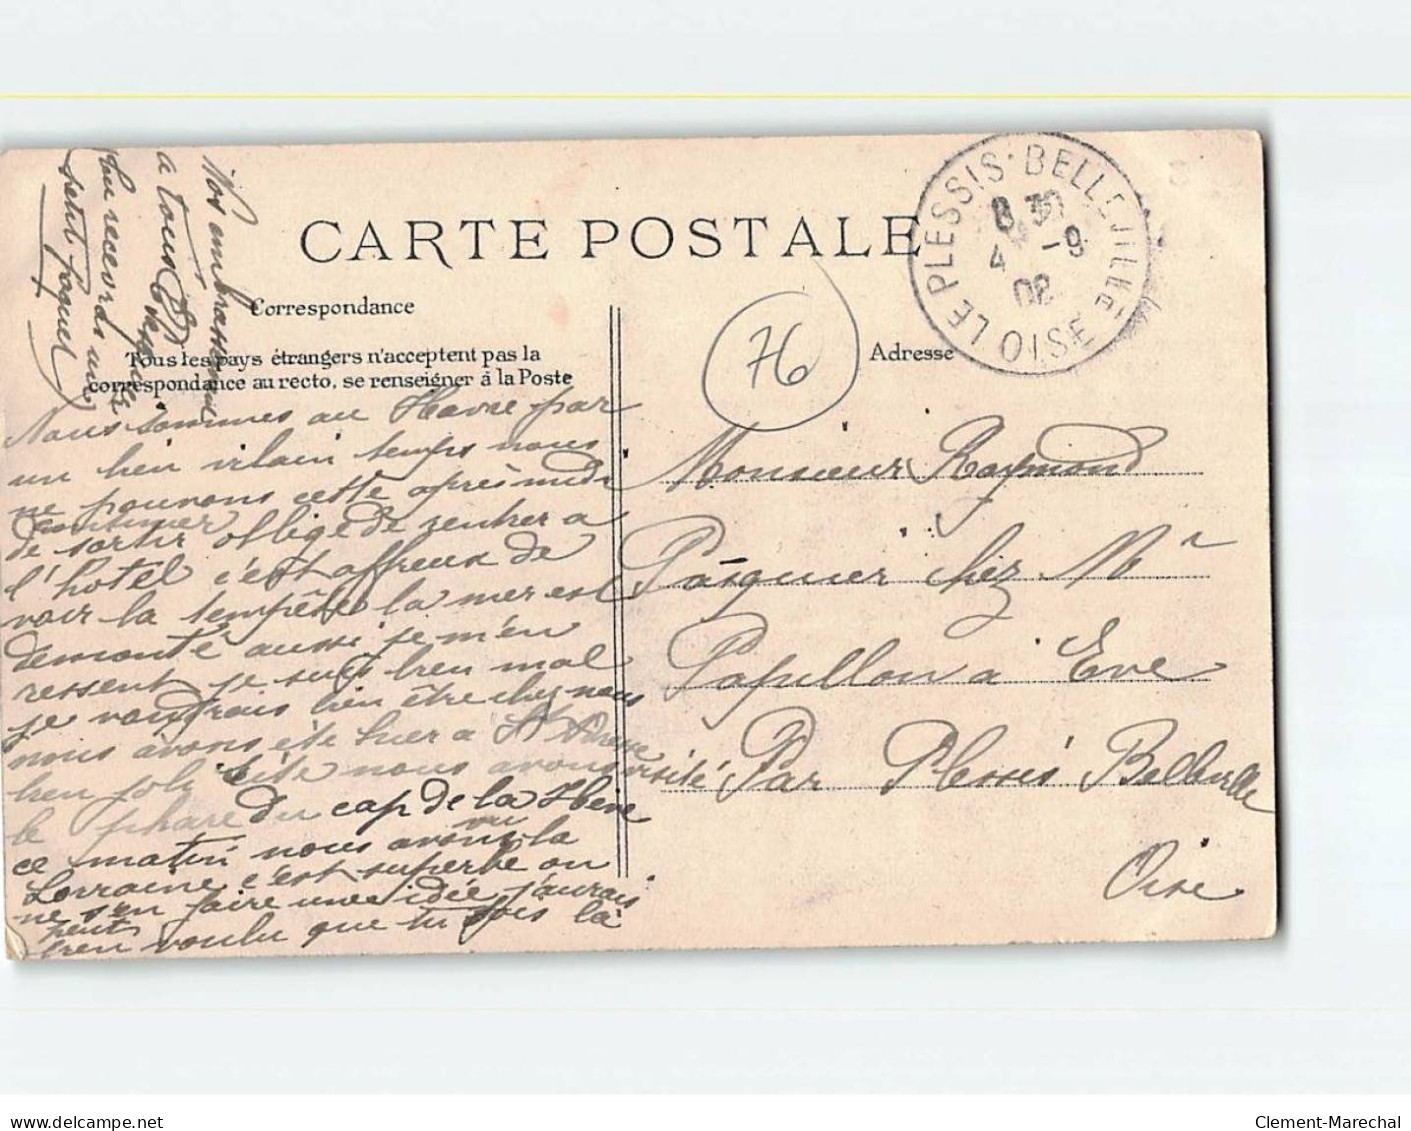 CARTE POSTALE
Correspondance
Tous les pays étrangers n'acceptent pas la
correspondance au recto, se renseigner à la Poste
Adresse
LE PLESSIS-BELLEVILLE
OISE
8 30
4 -9
76
Nous sommes au Havre par
un bien vilain temps nous
ne pouvons cette après midi
continuer
de sortir obligé de rentrer a
l'hotel c'est affreux de
voir la tempête la mer est
demonté aussi je m'en
ressent je suis bien mal
je voudrais bien être chez nous
nous avons été hier a Ste Adresse
bien joli site nous avons visité
le phare du cap de la Heve
ce matin nous avons vu la
Lorraine c'est superbe on
ne peut s'en faire une idée j'aurais
bien voulu que tu sois là
Nos embrassement
a tous
tu recevras un
petit paquet
Monsieur Raymond
Pasquier chez Mr
Papillon a Eve
Par Plessis Belleville
Oise
delcampe.net
Clement-Marechal